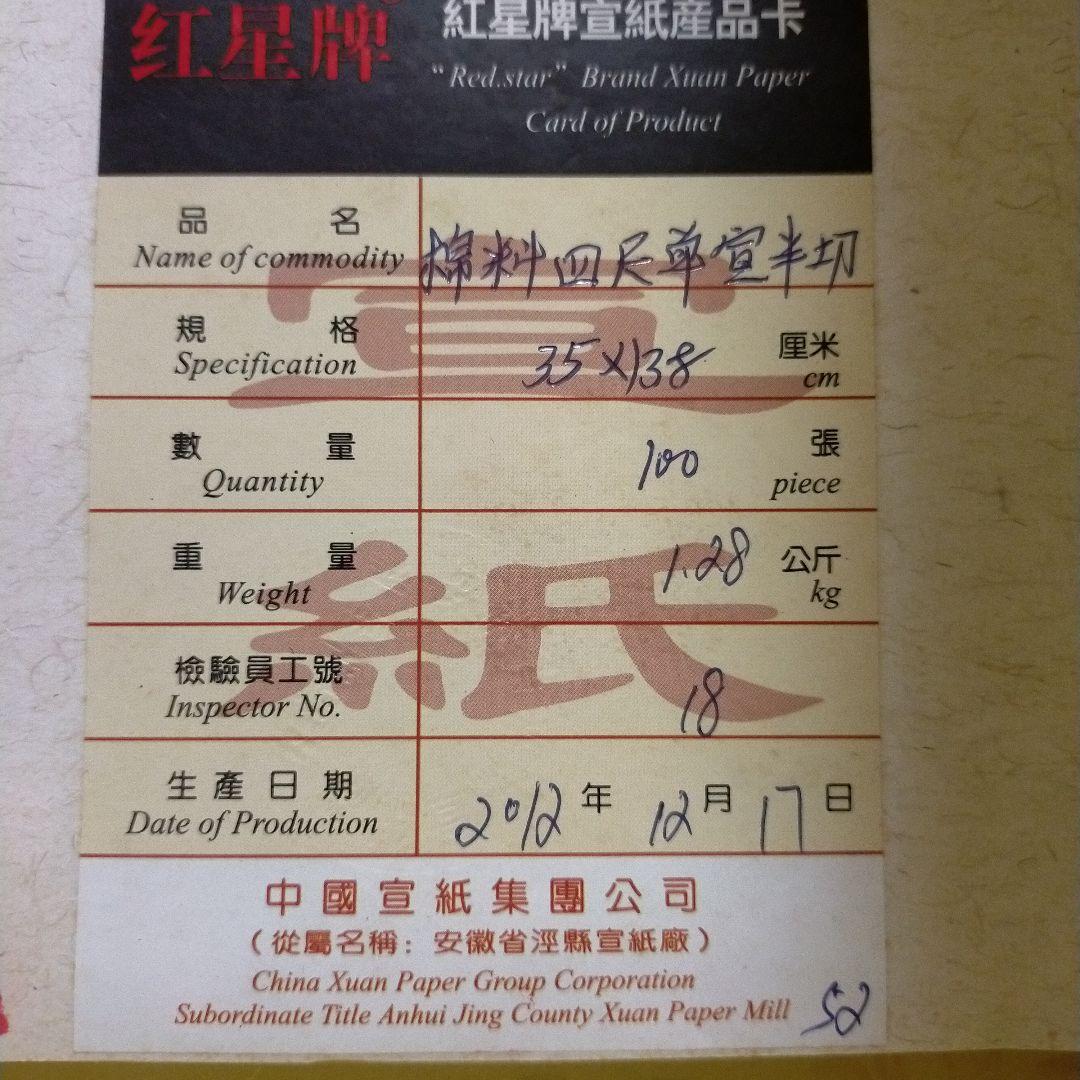 红星牌
紅星牌宣紙產品卡
“Red.star” Brand Xuan Paper
Card of Product
品 名
Name of commodity
棉料四尺单宣半切
規 格
Specification
35×138
厘米
cm
數 量
Quantity
100
張
piece
重 量
Weight
1.28
公斤
kg
檢驗員工號
Inspector No.
18
生產日期
Date of Production
2012 年 12 月 17 日
宣
紙
中國宣紙集團公司
（從屬名稱：安徽省涇縣宣紙廠）
China Xuan Paper Group Corporation
Subordinate Title Anhui Jing County Xuan Paper Mill
52